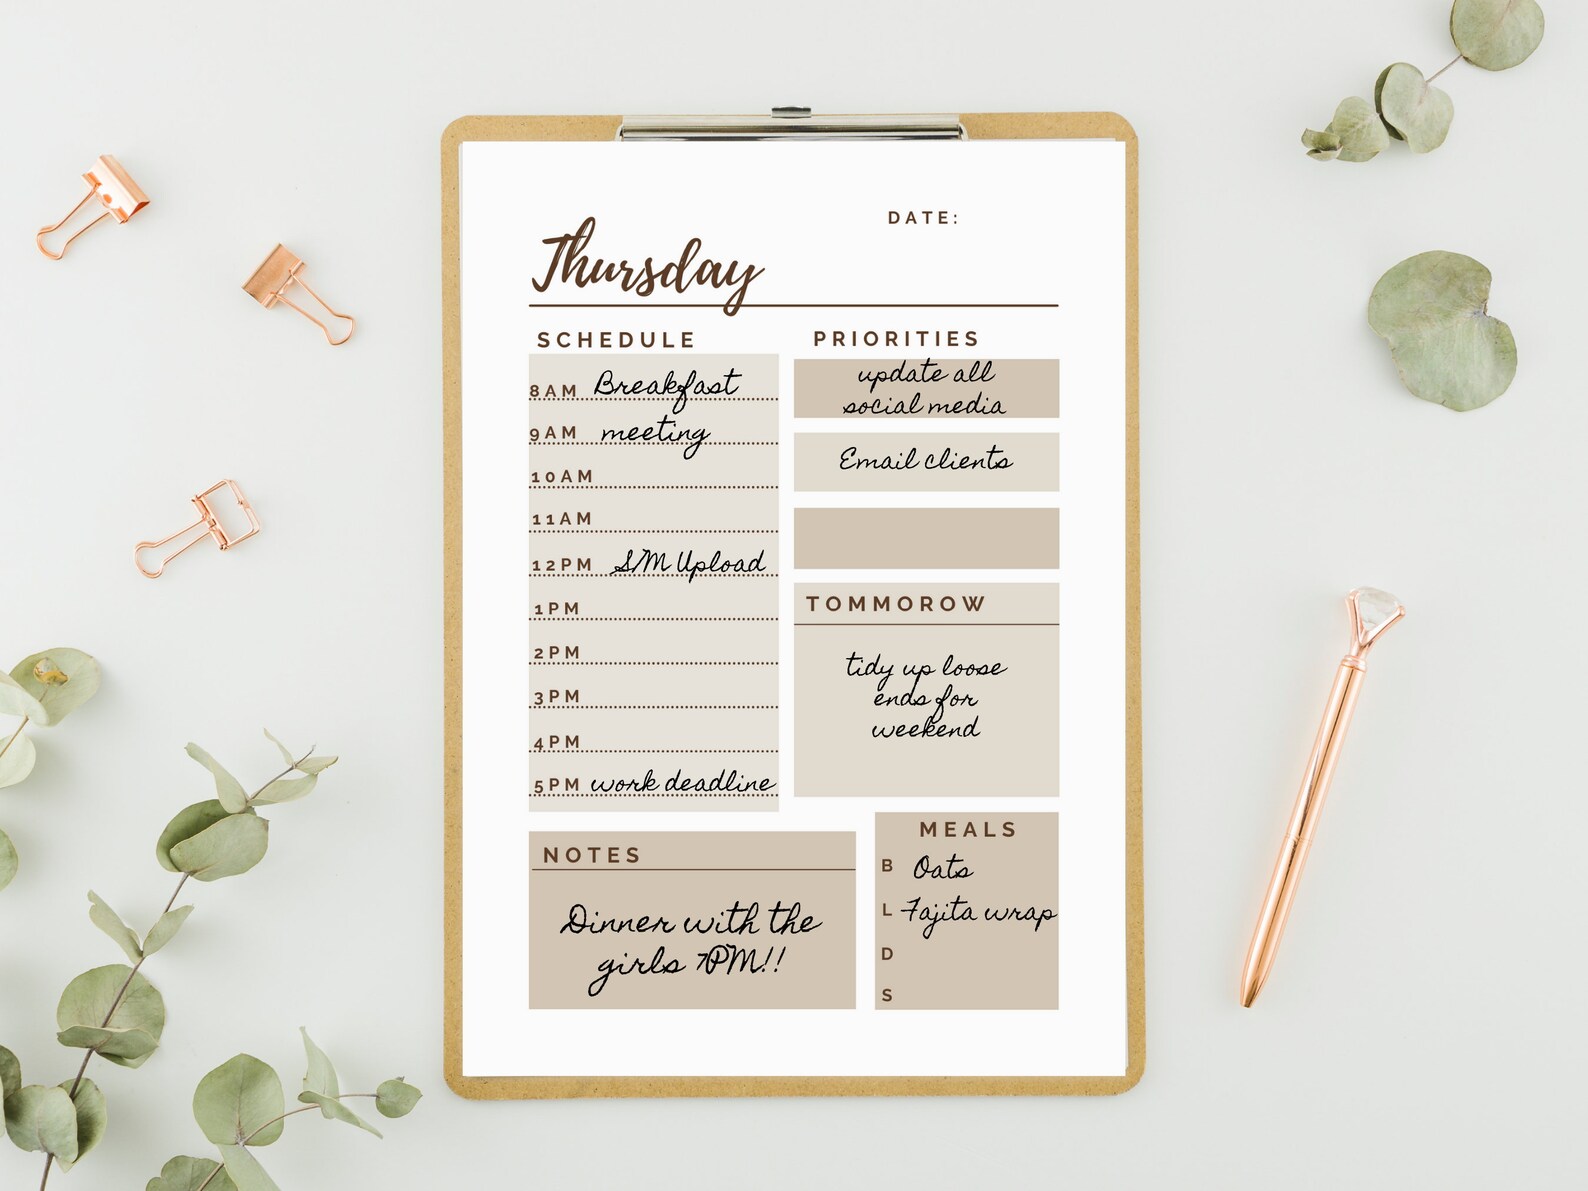 DATE:
Thursday
SCHEDULE
8AM Breakfast
9AM meeting
10AM
11AM
12PM S/M Upload
1PM
2PM
3PM
4PM
5PM work deadline
PRIORITIES
update all
social media
Email clients
TOMMOROW
tidy up loose
ends for
weekend
NOTES
Dinner with the
girls 7PM!!
MEALS
B Oats
L Fajita wrap
D
S